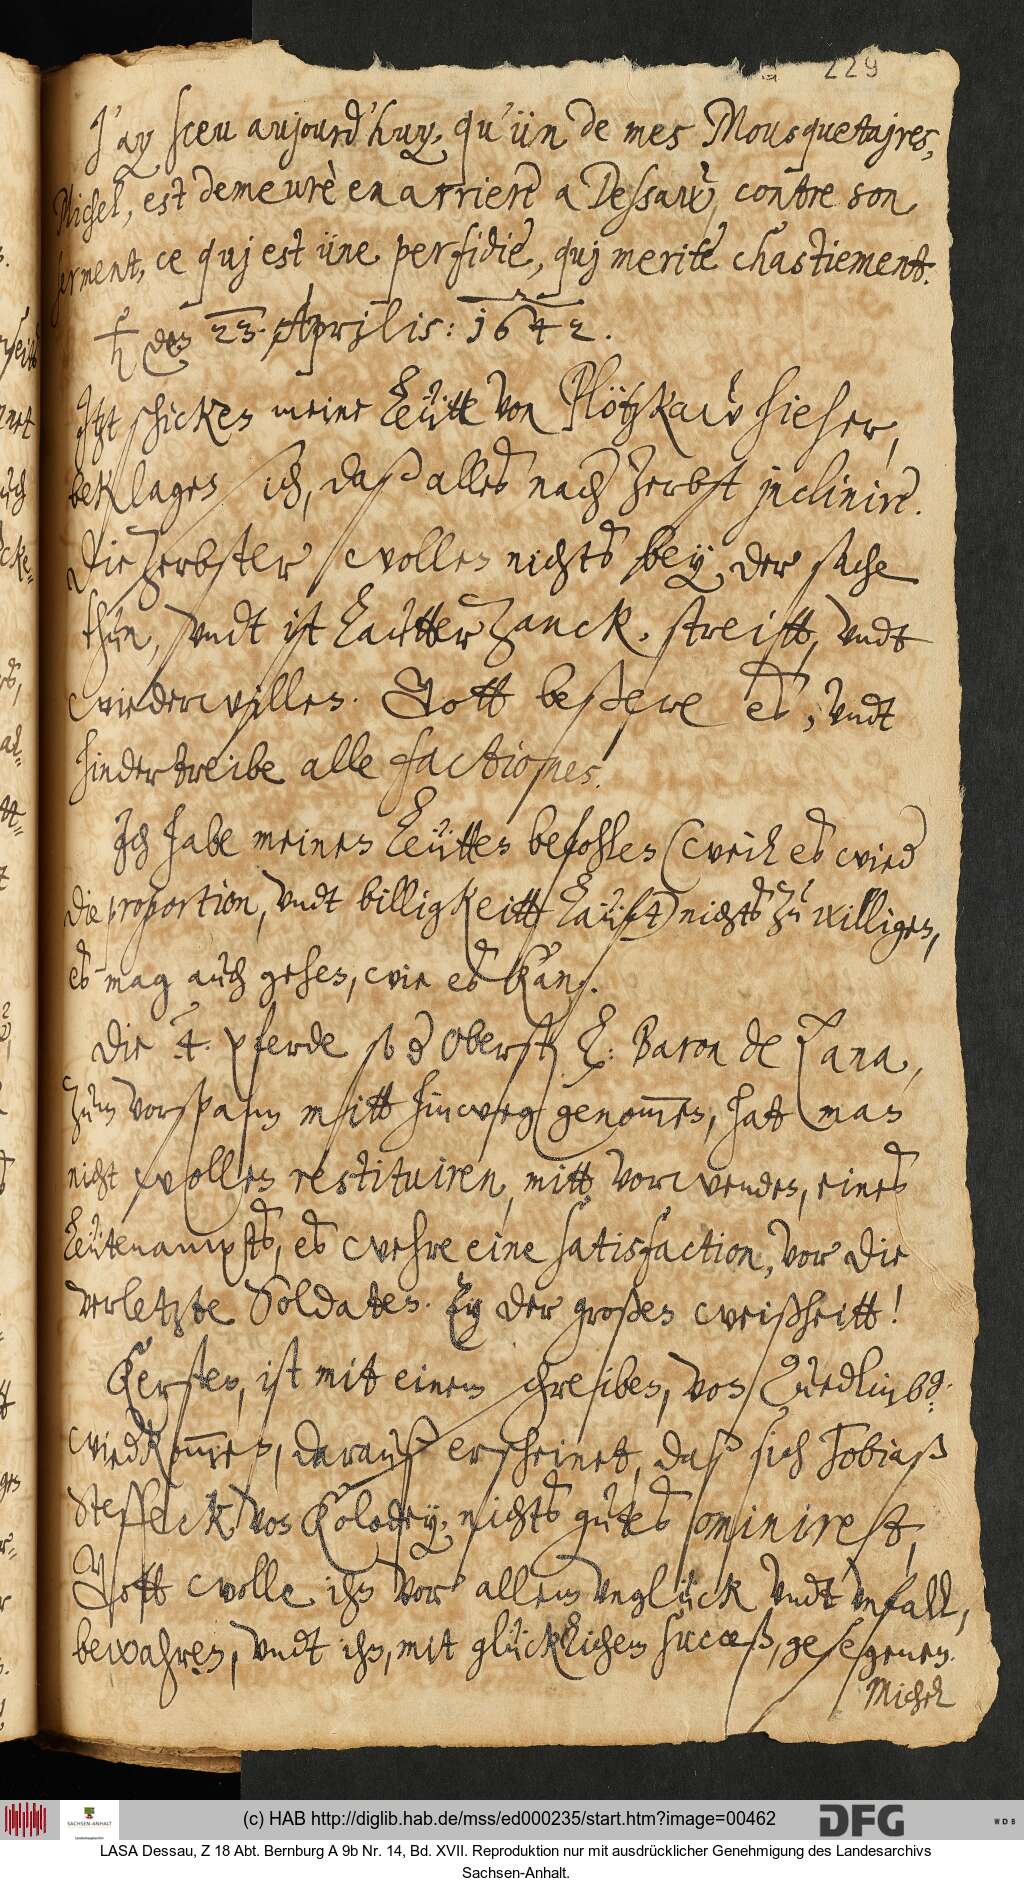 229
J'ay sceu aujourd'huy, qu'ün de mes Mousquetajres,
Michel, est demeurè en arriere a Dessaw, contre son
serment, ce quj est üne perfidie, quj merite chastiement.
♄ den 23. Aprilis: 1642.
Itzt schicken meine Leütte von Plötzkaw hieher,
beklagen sich, daß alles nach Zerbst inclinire.
Die Zerbster wollen nichts bey der sache
thun, vndt ist lautter zanck, streitt, vndt
wiederwillen. Gott beßere es, vndt
hindertreibe alle factiones.
Ich habe meinen Leütten befohlen (weil es wied
die proportion, vndt billigkeitt läuft) nichts zu willigen,
es mag auch gehen, wie es kan.
Die 4. pferde so d Oberst L: Baron de Fana,
zum vorspann mitt hinweg genommen, hatt man
nicht wollen restituiren, mitt vorwenden, eines
Leütenampts, es wehre eine satisfaction, vor die
verletzte Soldaten. Ey der großen weißheitt!
Kersten, ist mit einem schreiben, von Quedlinbg:
wied kommen, darauß erscheinet, daß sich Tobiaß
Steffeck von Kolodey, nichts gutes ominirest,
Gott wolle ihn vor allem vnglück vndt vnfall,
bewahren, vndt ihn, mit glücklichem succeß, gesegenen.
Michel
(c) HAB http://diglib.hab.de/mss/ed000235/start.htm?image=00462
SACHSEN-ANHALT
DFG
WDB
LASA Dessau, Z 18 Abt. Bernburg A 9b Nr. 14, Bd. XVII. Reproduktion nur mit ausdrücklicher Genehmigung des Landesarchivs
Sachsen-Anhalt.